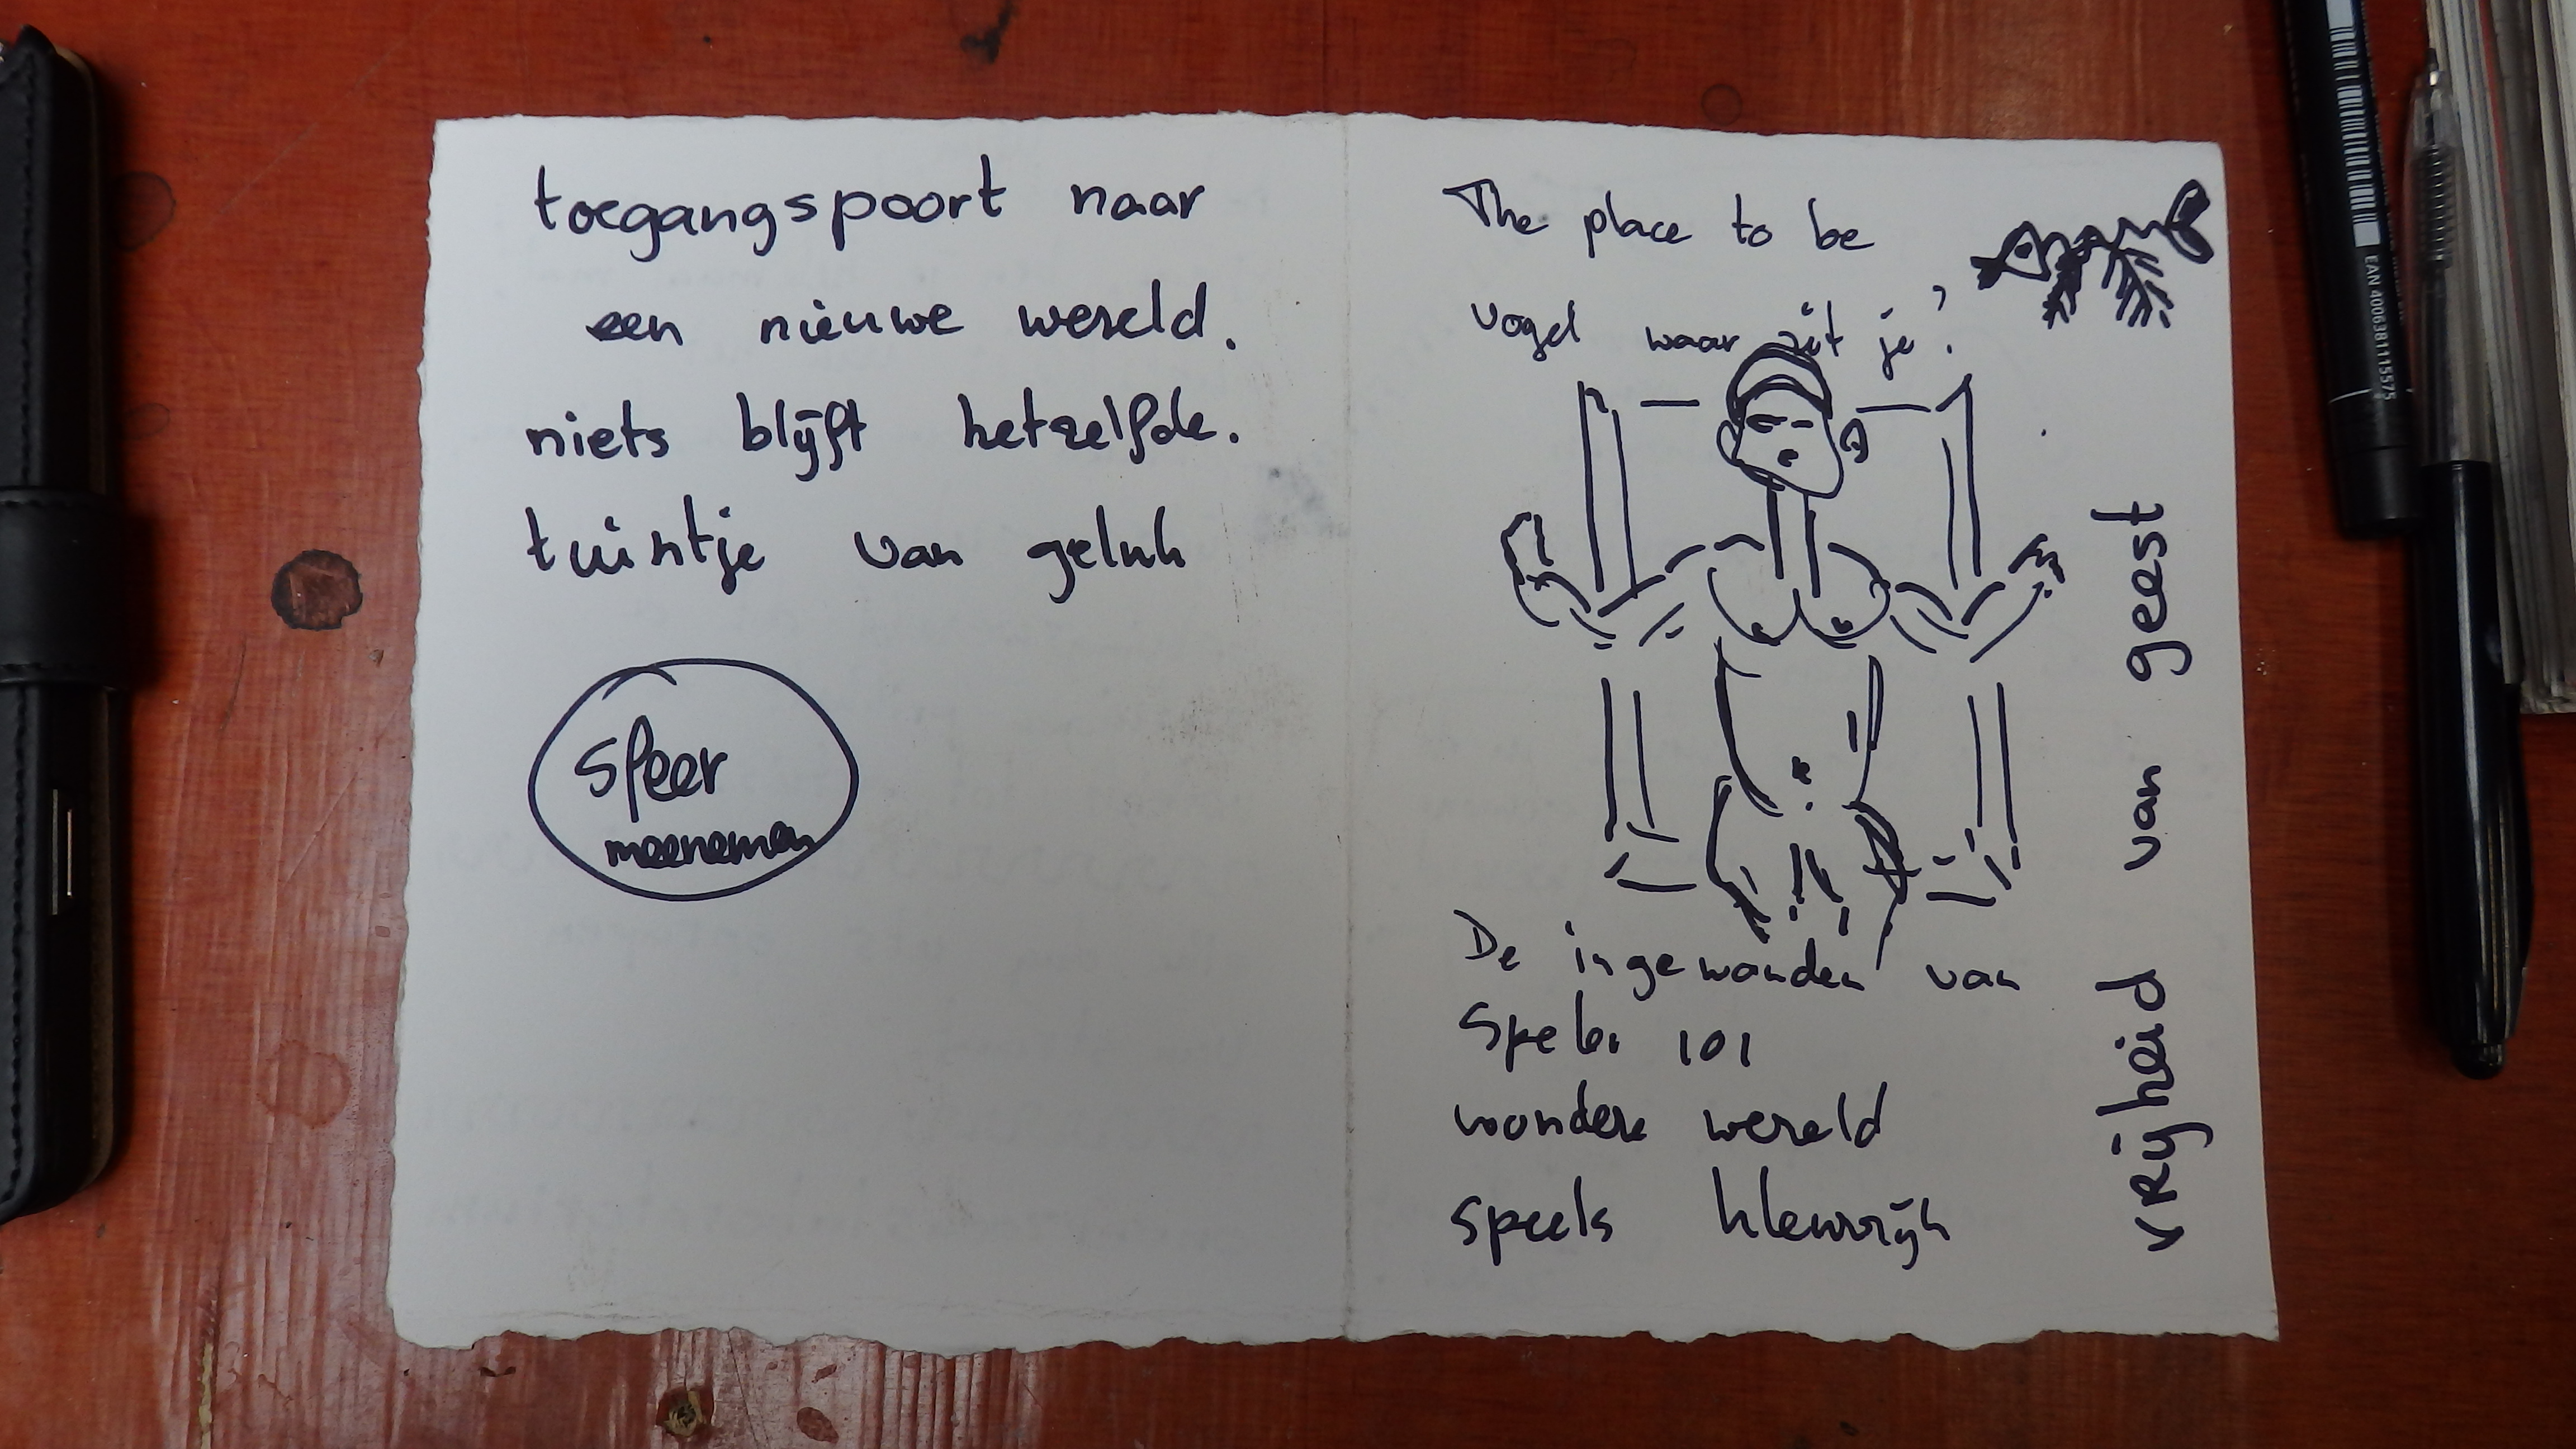 toegangspoort naar
een nieuwe wereld.
niets blijft hetzelfde.
tuintje van geluk
sfeer
meenemen
The place to be
vogel waar zit je?
De ingewanden van
101
wondere wereld
speels kleurrijk
vRijheid van geest
EAN 4006381115575